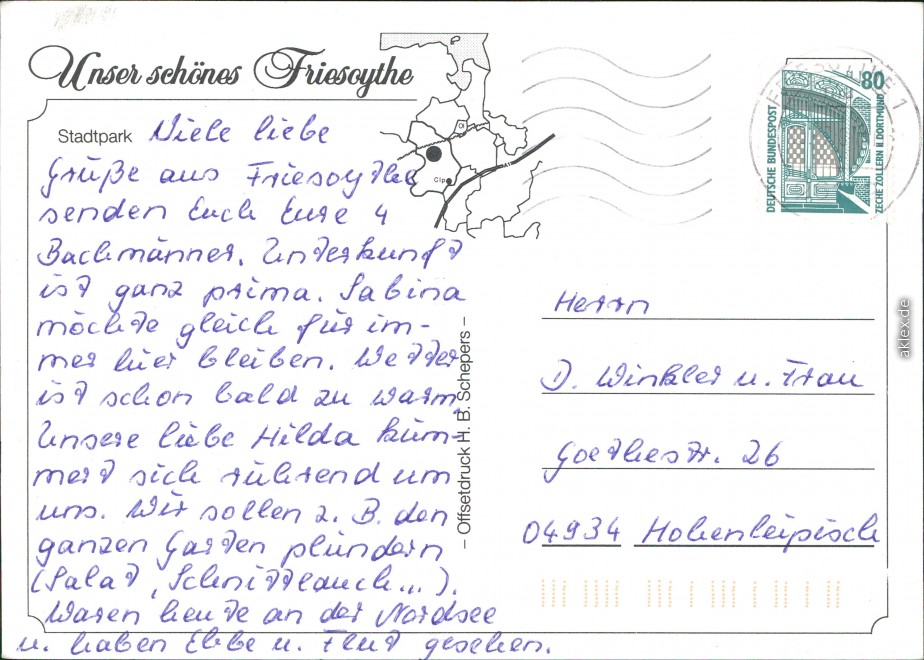 Unser schönes Friesoythe
Stadtpark
Viele liebe
Grüße aus Friesoythe
senden Euch Eure 4
Bachmänner. Unterkunft
ist ganz prima. Sabina
möchte gleich für im-
mer hier bleiben. Wetter
ist schon bald zu warm.
Unsere liebe Hilda küm-
mert sich rührend um
uns. Wir sollen z. B. den
ganzen Garten plündern
(Salat, Schnittlauch...).
Waren heute an der Nordsee
u. haben Ebbe u. Flut gesehen.
Clp
– Offsetdruck H. B. Schepers –
80
DEUTSCHE BUNDESPOST
ZECHE ZOLLERN II DORTMUND
Herrn
D. Winkler u. Frau
Goethestr. 26
04934 Hohenleipisch
aklex.de